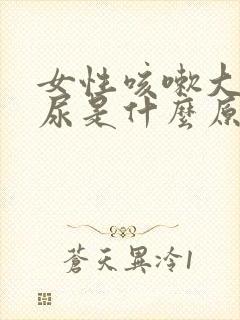 女性咳嗽大
尿是什麼原
蒼天異冷1